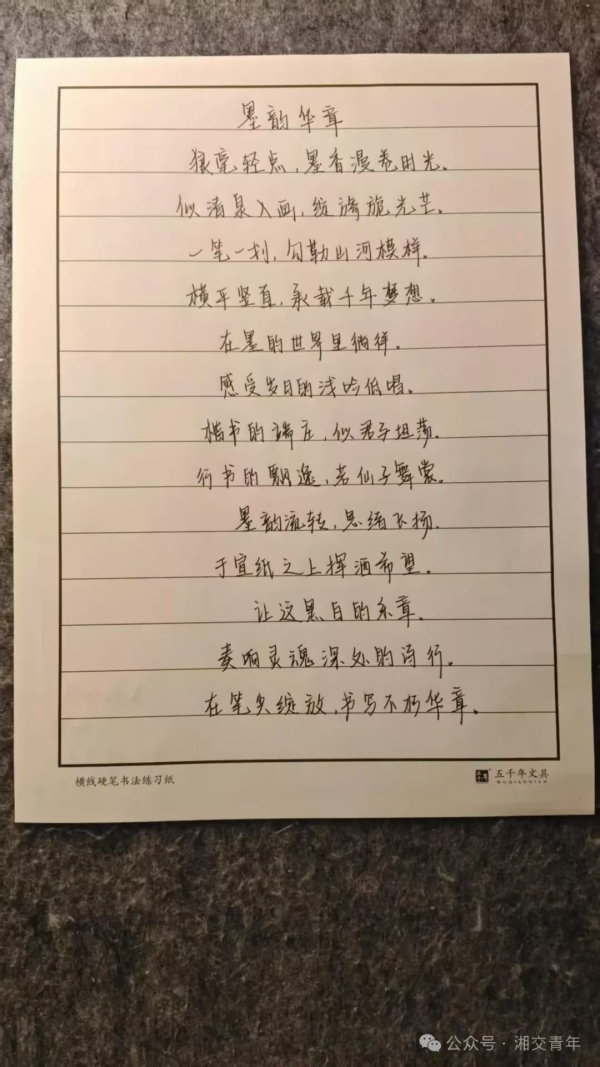 墨韵华章
狼毫轻点，墨香漫卷时光。
似清泉入画，绽旖旎光芒。
一笔一划，勾勒山河模样。
横平竖直，承载千年梦想。
在墨的世界里徜徉。
感受岁月的浅吟低唱。
楷书的端庄，似君子坦荡。
行书的飘逸，若仙子舞裳。
墨韵流转，思绪飞扬。
于宣纸之上挥洒希望。
让这黑白的乐章。
奏响灵魂深处的诗行。
在笔尖绽放，书写不朽华章。
横线硬笔书法练习纸
五千年文具
WUQIANNIAN
公众号·湘交青年